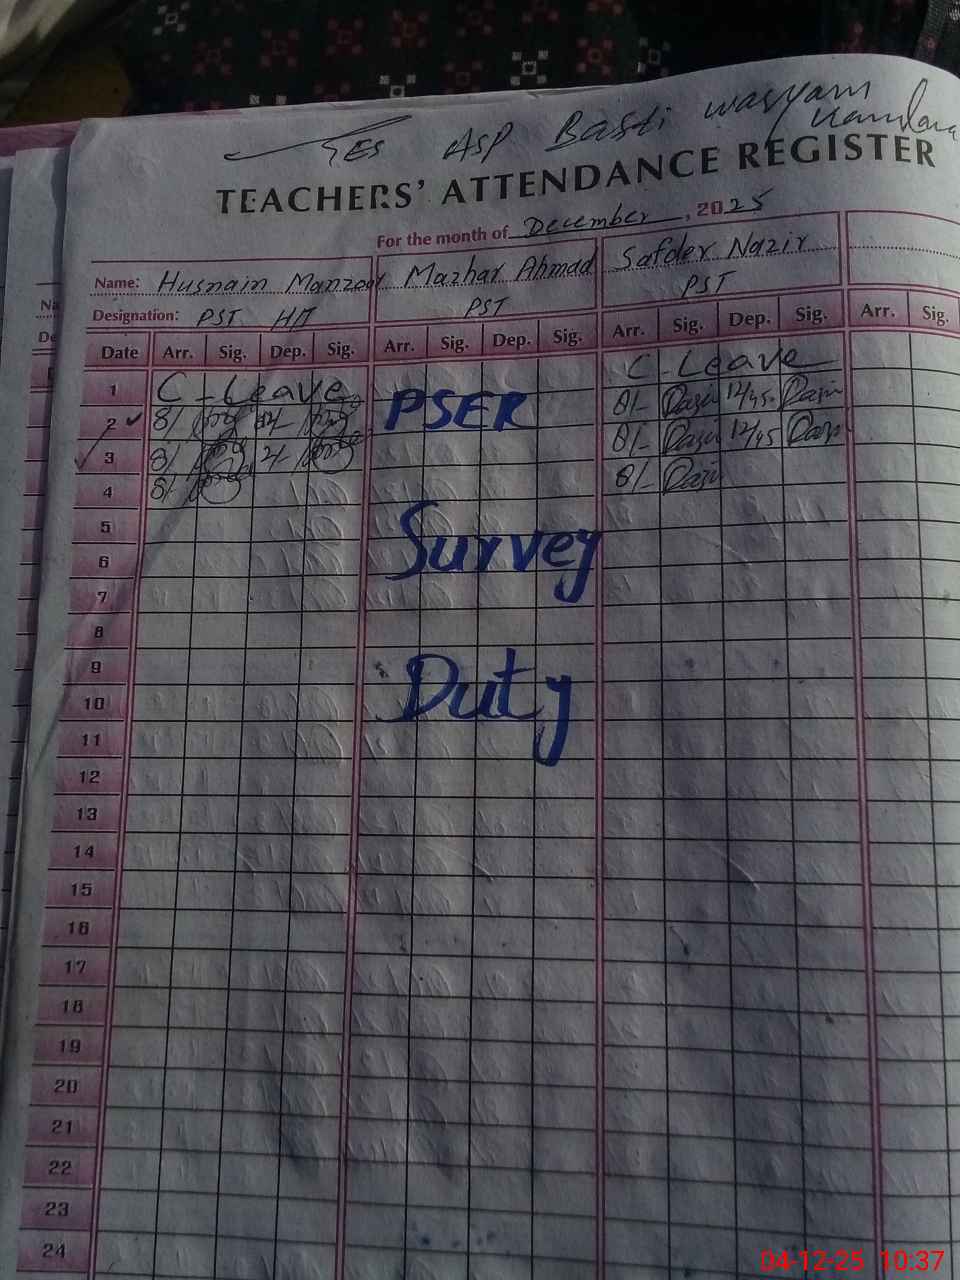 GES ASP Basti waryam
TEACHERS' ATTENDANCE REGISTER
For the month of December, 2025
Name: Husnain Manzoor Mazhar Ahmad Safder Nazir
Designation: PST HT PST PST
Date Arr. Sig. Dep. Sig. Arr. Sig. Dep. Sig. Arr. Sig. Dep. Sig. Arr. Sig.
1 C-Leave PSER C-Leave
2 8/ 8/- 12/45
3 8/ 2/- 8/- 12/45
4 8/- 8/-
5 Survey
6
7
8
9 Duty
10
11
12
13
14
15
16
17
18
19
20
21
22
23
24
04-12-25 10:37